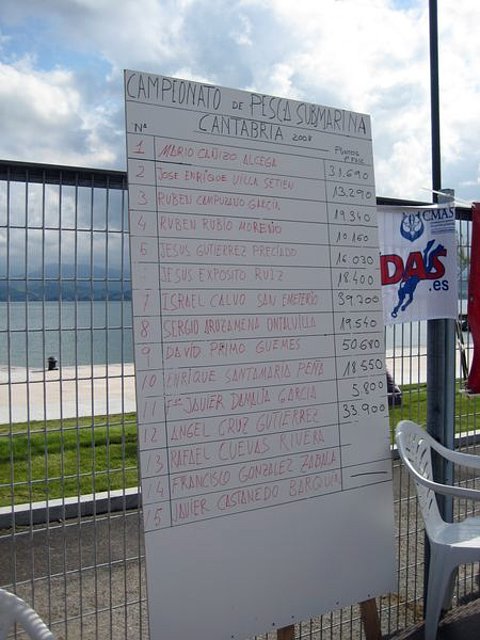 CAMPEONATO DE PESCA SUBMARINA
CANTABRIA 2008
Nº
1 MARIO CAÑIZO ALCEGA 31.690
2 JOSE ENRIQUE VILLA SETIEN 13.290
3 RUBEN CAMPUZANO GARCIA 19.340
4 RUBEN RUBIO MORENO 10.160
JESUS GUTIERREZ PRECIADO 16.030
JESUS EXPOSITO RUIZ 18.400
7 ISRAEL CALVO SAN EMETERIO 39.200
8 SERGIO AROZAMENA ONTALVILLA 19.540
9 DAVID PRIMO GUEMES 50.680
10 ENRIQUE SANTAMARIA PEÑA 18.550
11 JAVIER DAMALIA GARCIA 5.800
12 ANGEL CRUZ GUTIERREZ 33.900
13 RAFAEL CUEVAS RIVERA
14 FRANCISCO GONZALEZ ZABALA
15 JAVIER CASTANEDO BARQUIN
CMAS
DAS
.es